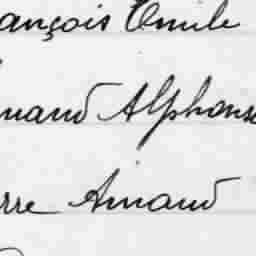 ançois Emile
nand Alphonse
rre Amand